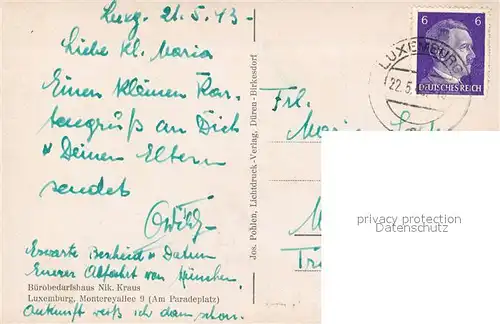 Luxg. 21.5.43.
Liebe kl. Maria
Einen kleinen Kar-
tengruß an Dich
u Deinen Eltern
sendet
Erwarte Bescheid u Datum
Eurer Abfahrt von München.
Bürobedarfshaus Nik. Kraus
Luxemburg, Montereyallee 9 (Am Paradeplatz)
Ankunft weiß ich dann schon.
Jos. Pohlen, Lichtdruck-Verlag, Düren-Birkesdorf
6 6
DEUTSCHES REICH
LUXEMBURG
22.5.
Frl.
privacy protection
Datenschutz